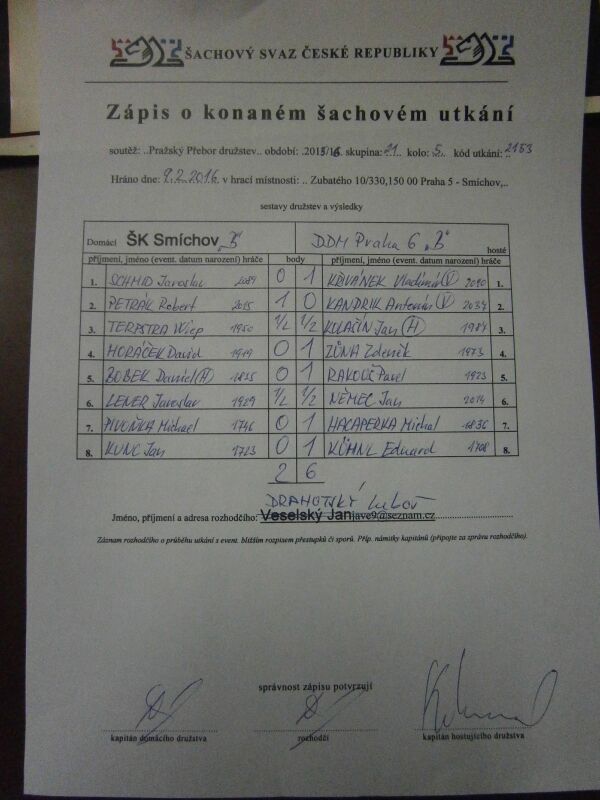 ŠACHOVÝ SVAZ ČESKÉ REPUBLIKY
Zápis o konaném šachovém utkání
soutěž: ..Pražský Přebor družstev.. období: .2015/16. skupina: 21.. kolo: 5.. kód utkání: 2153
Hráno dne: 9.2.2016. v hrací místnosti: .. Zubatého 10/330,150 00 Praha 5 - Smíchov,..
sestavy družstev a výsledky
Domácí ŠK Smíchov „B“ DDM Praha 6 „B“ hosté
příjmení, jméno (event. datum narození) hráče body příjmení, jméno (event. datum narození) hráče
1. SCHMID Jaroslav 2089 0 1 KŘIVÁNEK Vladimír (V) 1.
2. PETRÁK Robert 2015 1 0 KANDRIK Antonín (V) 2034 2.
3. TERPSTRA Wiep 1950 1/2 1/2 Jan (H) 1984 3.
4. HORÁČEK David 1919 0 1 ZŮNA Zdeněk 1973 4.
5. BOBEK Daniel (H) 1835 0 1 Pavel 1923 5.
6. LENER Jaroslav 1929 1/2 1/2 NĚMEC Jan 2014 6.
7. PIVOŇKA Michael 1746 0 1 HACAPERKA Michal 1836 7.
8. KUNC Jan 1723 0 1 KÜHNL Eduard 1708 8.
2 6
DRAHOTSKÝ Luboš
Jméno, příjmení a adresa rozhodčího: Veselský Jan jave9@seznam.cz
Záznam rozhodčího o průběhu utkání s event. bližším rozpisem přestupků či sporů. Příp. námitky kapitánů (připojte za správu rozhodčího).
správnost zápisu potvrzují
kapitán domácího družstva rozhodčí kapitán hostujícího družstva